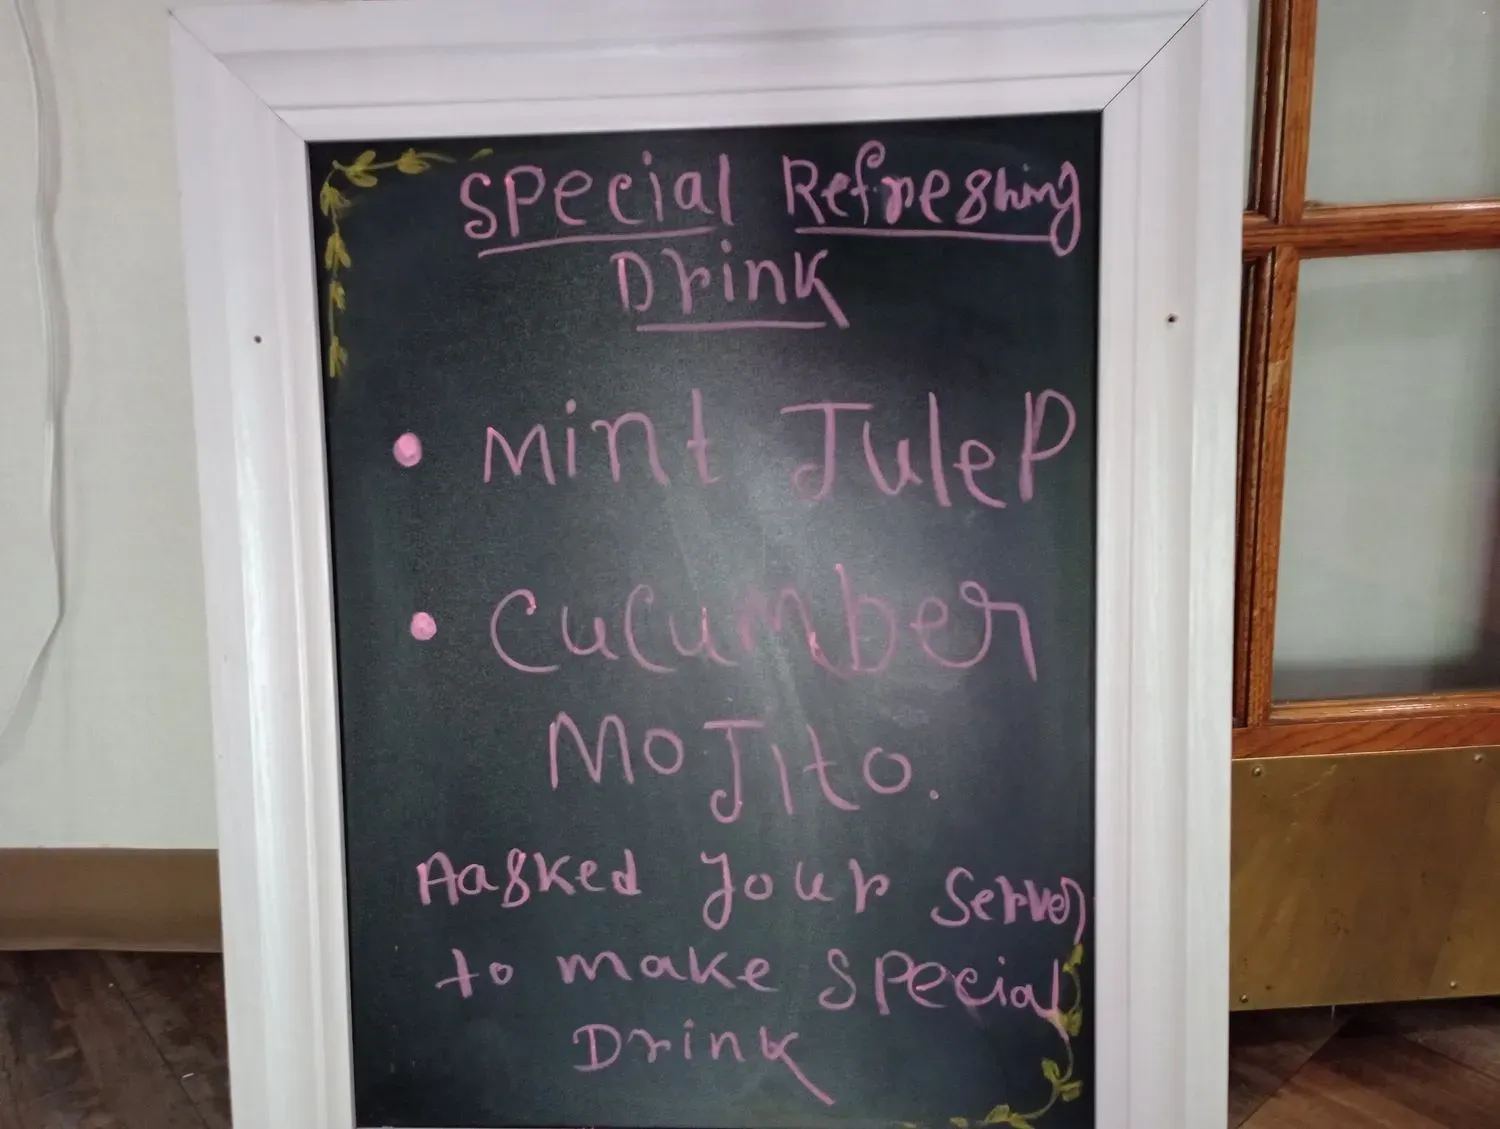 Special Refreshing
Drink
• Mint Julep
• Cucumber
Mojito.
Aasked your server
to make special
Drink